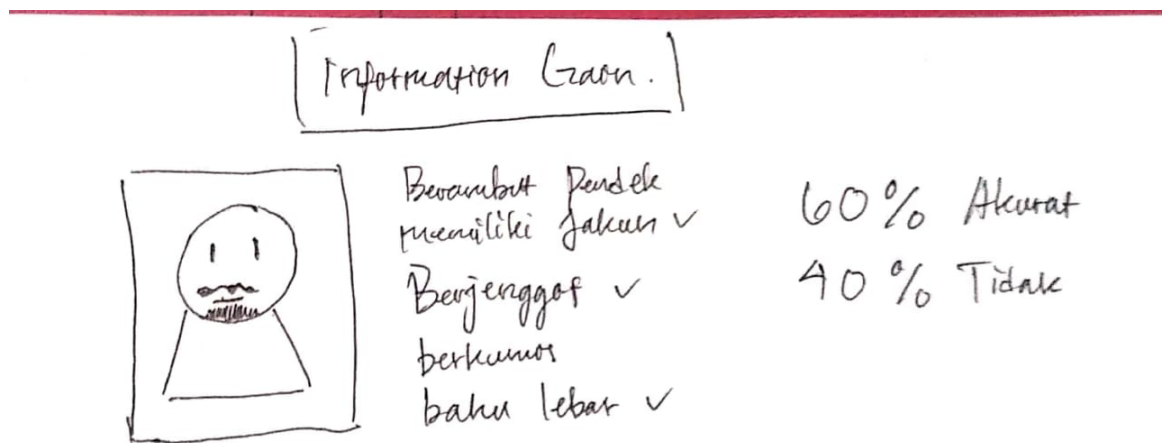 Information Gaon.
Berambut Pendek
memiliki Jakun ✓
Berjenggot ✓
berkumis
bahu lebar ✓
60 % Akurat
40 % Tidak